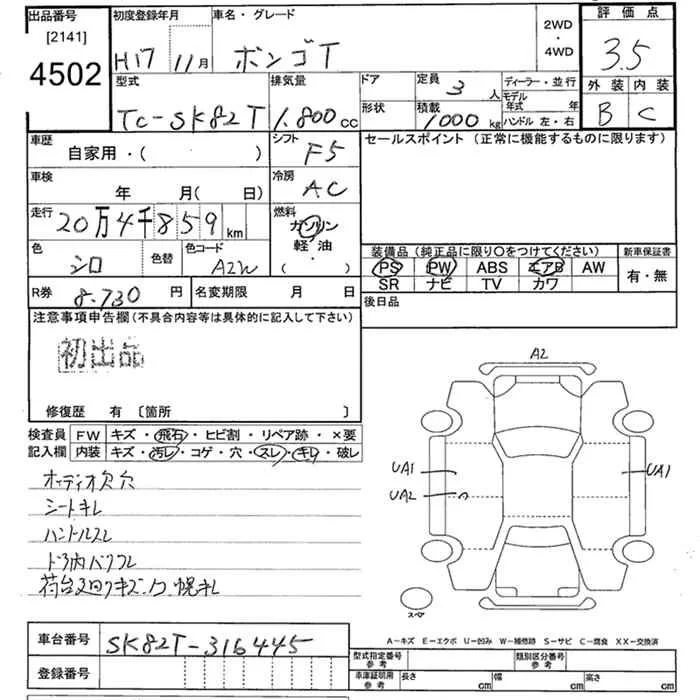 出品番号 初度登録年月 車名・グレード 2WD・4WD 評価点
[2141] 4502 H17 11月 ボンゴT 3.5
型式 排気量 ドア 定員 3人 ディーラー・並行 外装 内装
TC-SK82T 1.800cc 形状 積載 1000kg モデル年式 年 B C
ハンドル 左・右
車歴 シフト セールスポイント (正常に機能するものに限ります)
自家用・( ) F5
車検 冷房
年 月( 日) AC
走行 燃料
20万4千859km ガソリン
軽油
( )
色 色替 色コード 装備品 (純正品に限り○をつけてください) 新車保証書
シロ A2W PS PW ABS エアB AW 有・無
SR ナビ TV カワ
R券 8.730円 名変期限 月 日 後日品
注意事項申告欄(不具合内容等は具体的に記入して下さい)
初出品
修復歴 有 〔箇所 〕
検査員 FW キズ・飛石・ヒビ割・リペア跡・×要
記入欄 内装 キズ・汚レ・コゲ・穴・スレ・キレ・破レ
オーディオ欠穴
シートキレ
ハンドルスレ
ドア内バリフレ
荷台 キズ 幌キレ
A2
UA1 UA1
UA2
スペア
A-キズ E-エクボ U-凹み W-補修跡 S-サビ C-腐食 XX-交換済
車台番号 SK82T-316445
登録番号
型式指定番号 参考 類別区分番号 参考
車庫証明用 参考 長さ cm 幅 cm 高さ cm